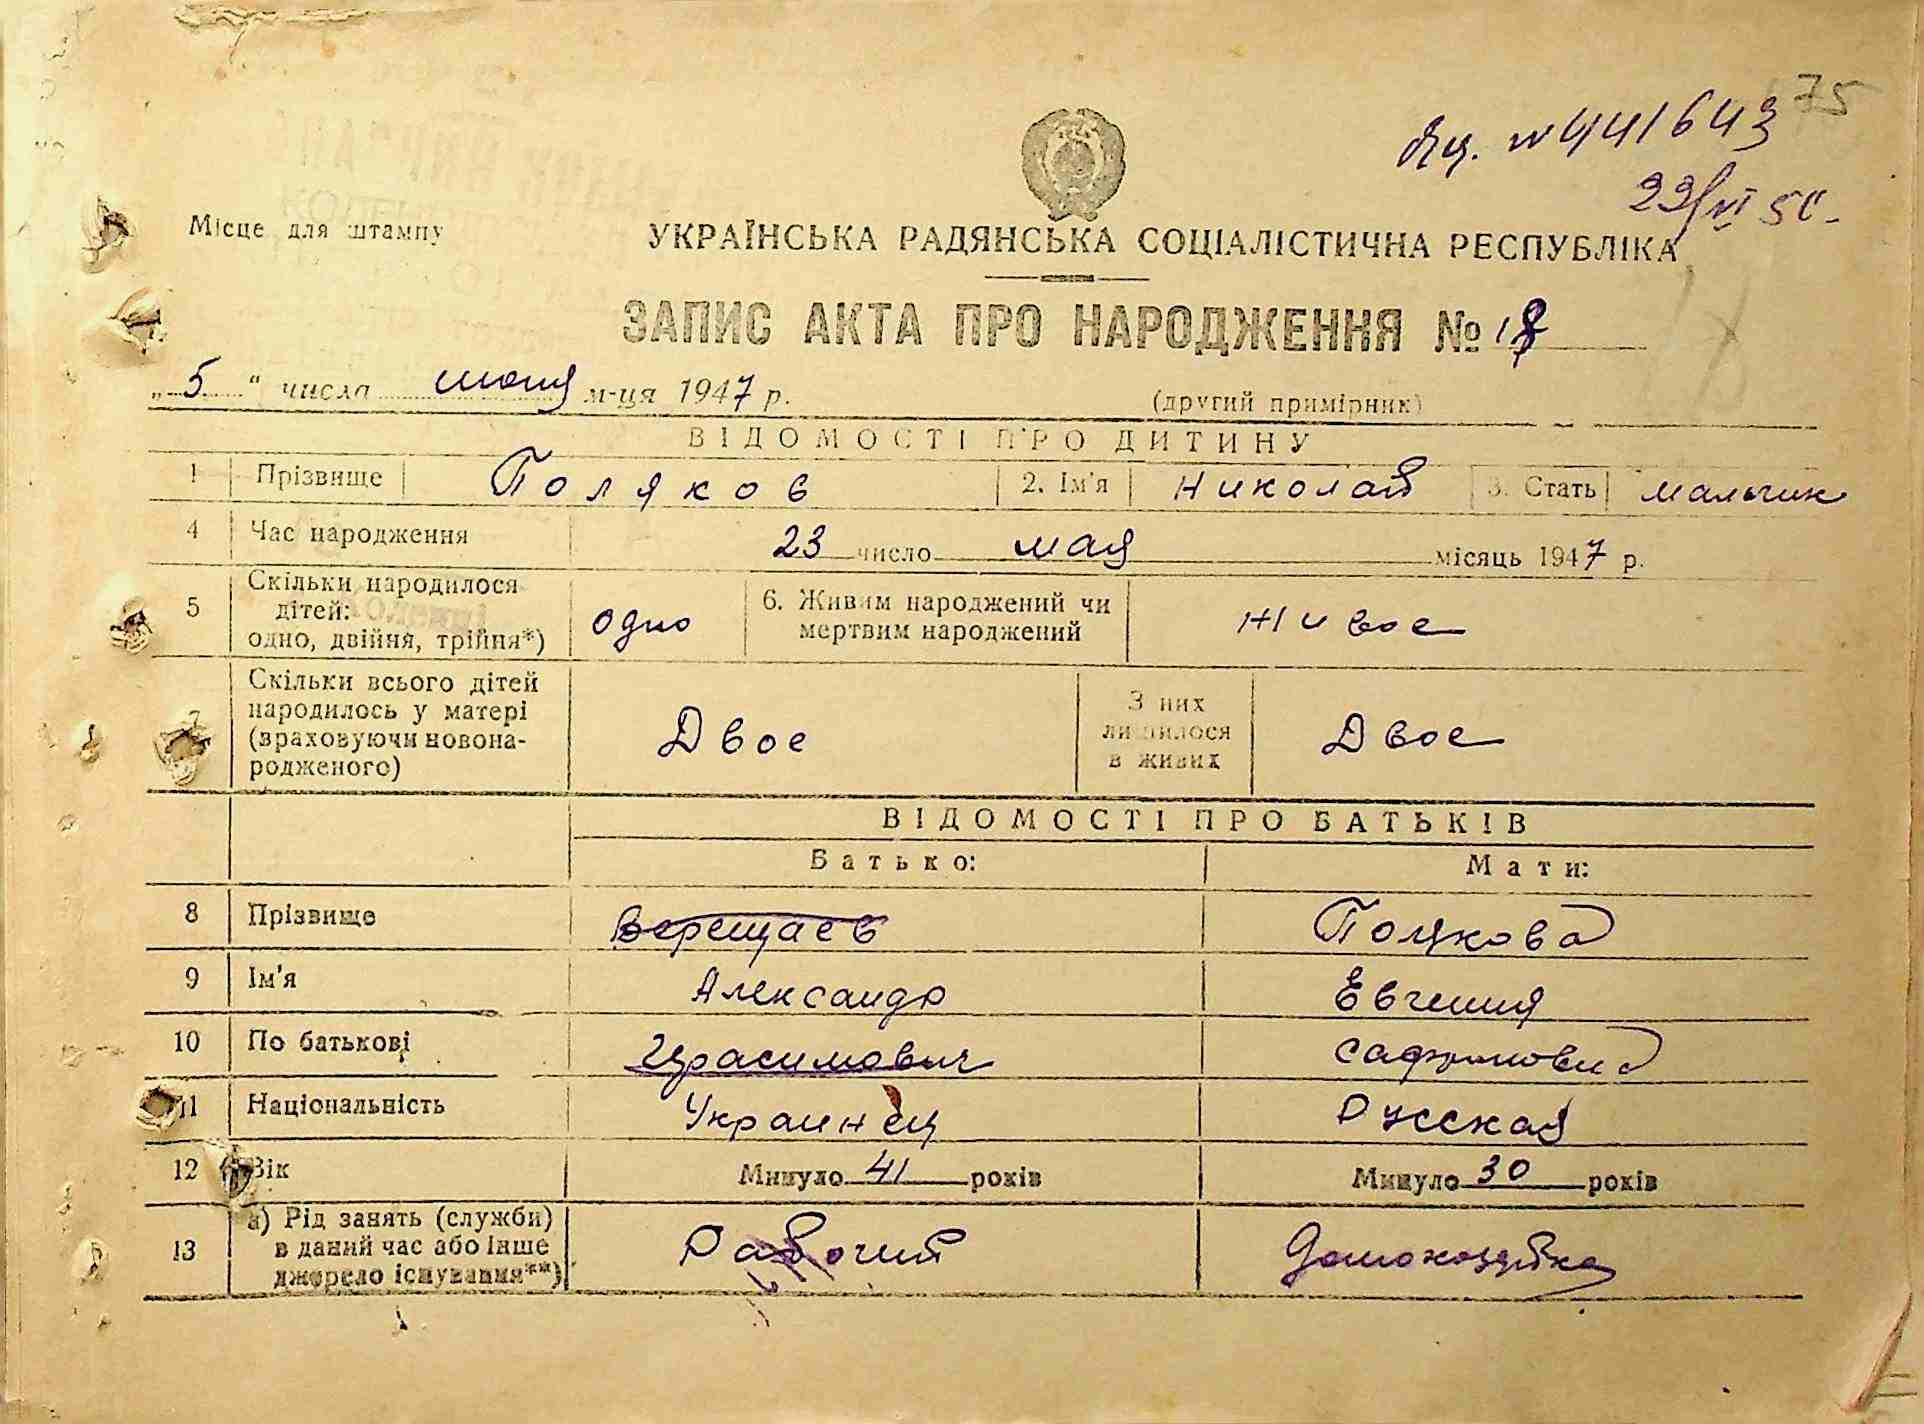 75
№ 441643
23/VI 50
Місце для штампу
УКРАЇНСЬКА РАДЯНСЬКА СОЦІАЛІСТИЧНА РЕСПУБЛІКА
ЗАПИС АКТА ПРО НАРОДЖЕННЯ № 18
„5“ числа июня м-ця 1947 р.
(другий примірник)
ВІДОМОСТІ ПРО ДИТИНУ
1 Прізвище Поляков 2. Ім'я Николай 3. Стать мальчик
4 Час народження 23 число мая місяць 1947 р.
5 Скільки народилося дітей: одно, двійня, трійня*) одно 6. Живим народжений чи мертвим народжений живое
7 Скільки всього дітей народилось у матері (враховуючи новонародженого) Двое З них лишилося в живих Двое
ВІДОМОСТІ ПРО БАТЬКІВ
Батько: Мати:
8 Прізвище Верещаев Полякова
9 Ім'я Александр Евгения
10 По батькові Герасимович
11 Національність Украинец Русская
12 Вік Минуло 41 років Минуло 30 років
13 а) Рід занять (служби) в даний час або інше джерело існування**) Рабочий Домохозяйка